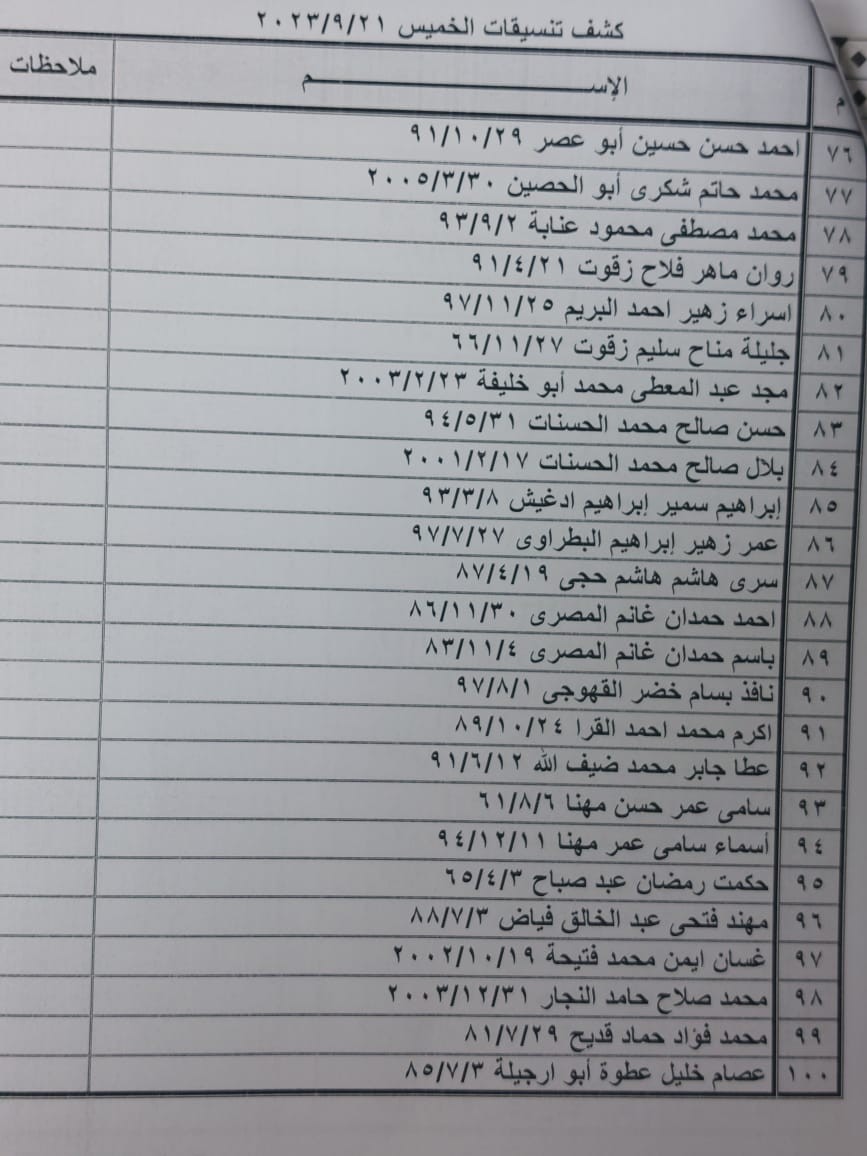 كشف تنسيقات الخميس ٢٠٢٣/٩/٢١
م الإســــــــم ملاحظات
٧٦ احمد حسن حسين أبو عصر ٩١/١٠/٢٩
٧٧ محمد حاتم شكرى أبو الحصين ٢٠٠٥/٣/٣٠
٧٨ محمد مصطفى محمود عنابة ٩٣/٩/٢
٧٩ روان ماهر فلاح زقوت ٩١/٤/٢١
٨٠ اسراء زهير احمد البريم ٩٧/١١/٢٥
٨١ جليلة مناح سليم زقوت ٦٦/١١/٢٧
٨٢ مجد عبد المعطى محمد أبو خليفة ٢٠٠٣/٢/٢٣
٨٣ حسن صالح محمد الحسنات ٩٤/٥/٣١
٨٤ بلال صالح محمد الحسنات ٢٠٠١/٢/١٧
٨٥ إبراهيم سمير إبراهيم ادغيش ٩٣/٣/٨
٨٦ عمر زهير إبراهيم البطراوى ٩٧/٧/٢٧
٨٧ سرى هاشم هاشم حجى ٨٧/٤/١٩
٨٨ احمد حمدان غانم المصرى ٨٦/١١/٣٠
٨٩ باسم حمدان غانم المصرى ٨٣/١١/٤
٩٠ نافذ بسام خضر القهوجى ٩٧/٨/١
٩١ اكرم محمد احمد القرا ٨٩/١٠/٢٤
٩٢ عطا جابر محمد ضيف الله ٩١/٦/١٢
٩٣ سامى عمر حسن مهنا ٦١/٨/٦
٩٤ أسماء سامى عمر مهنا ٩٤/١٢/١١
٩٥ حكمت رمضان عبد صباح ٦٥/٤/٣
٩٦ مهند فتحى عبد الخالق فياض ٨٨/٧/٣
٩٧ غسان ايمن محمد فتيحة ٢٠٠٢/١٠/١٩
٩٨ محمد صلاح حامد النجار ٢٠٠٣/١٢/٣١
٩٩ محمد فؤاد حماد قديح ٨١/٧/٢٩
١٠٠ عصام خليل عطوة أبو ارجيلة ٨٥/٧/٣